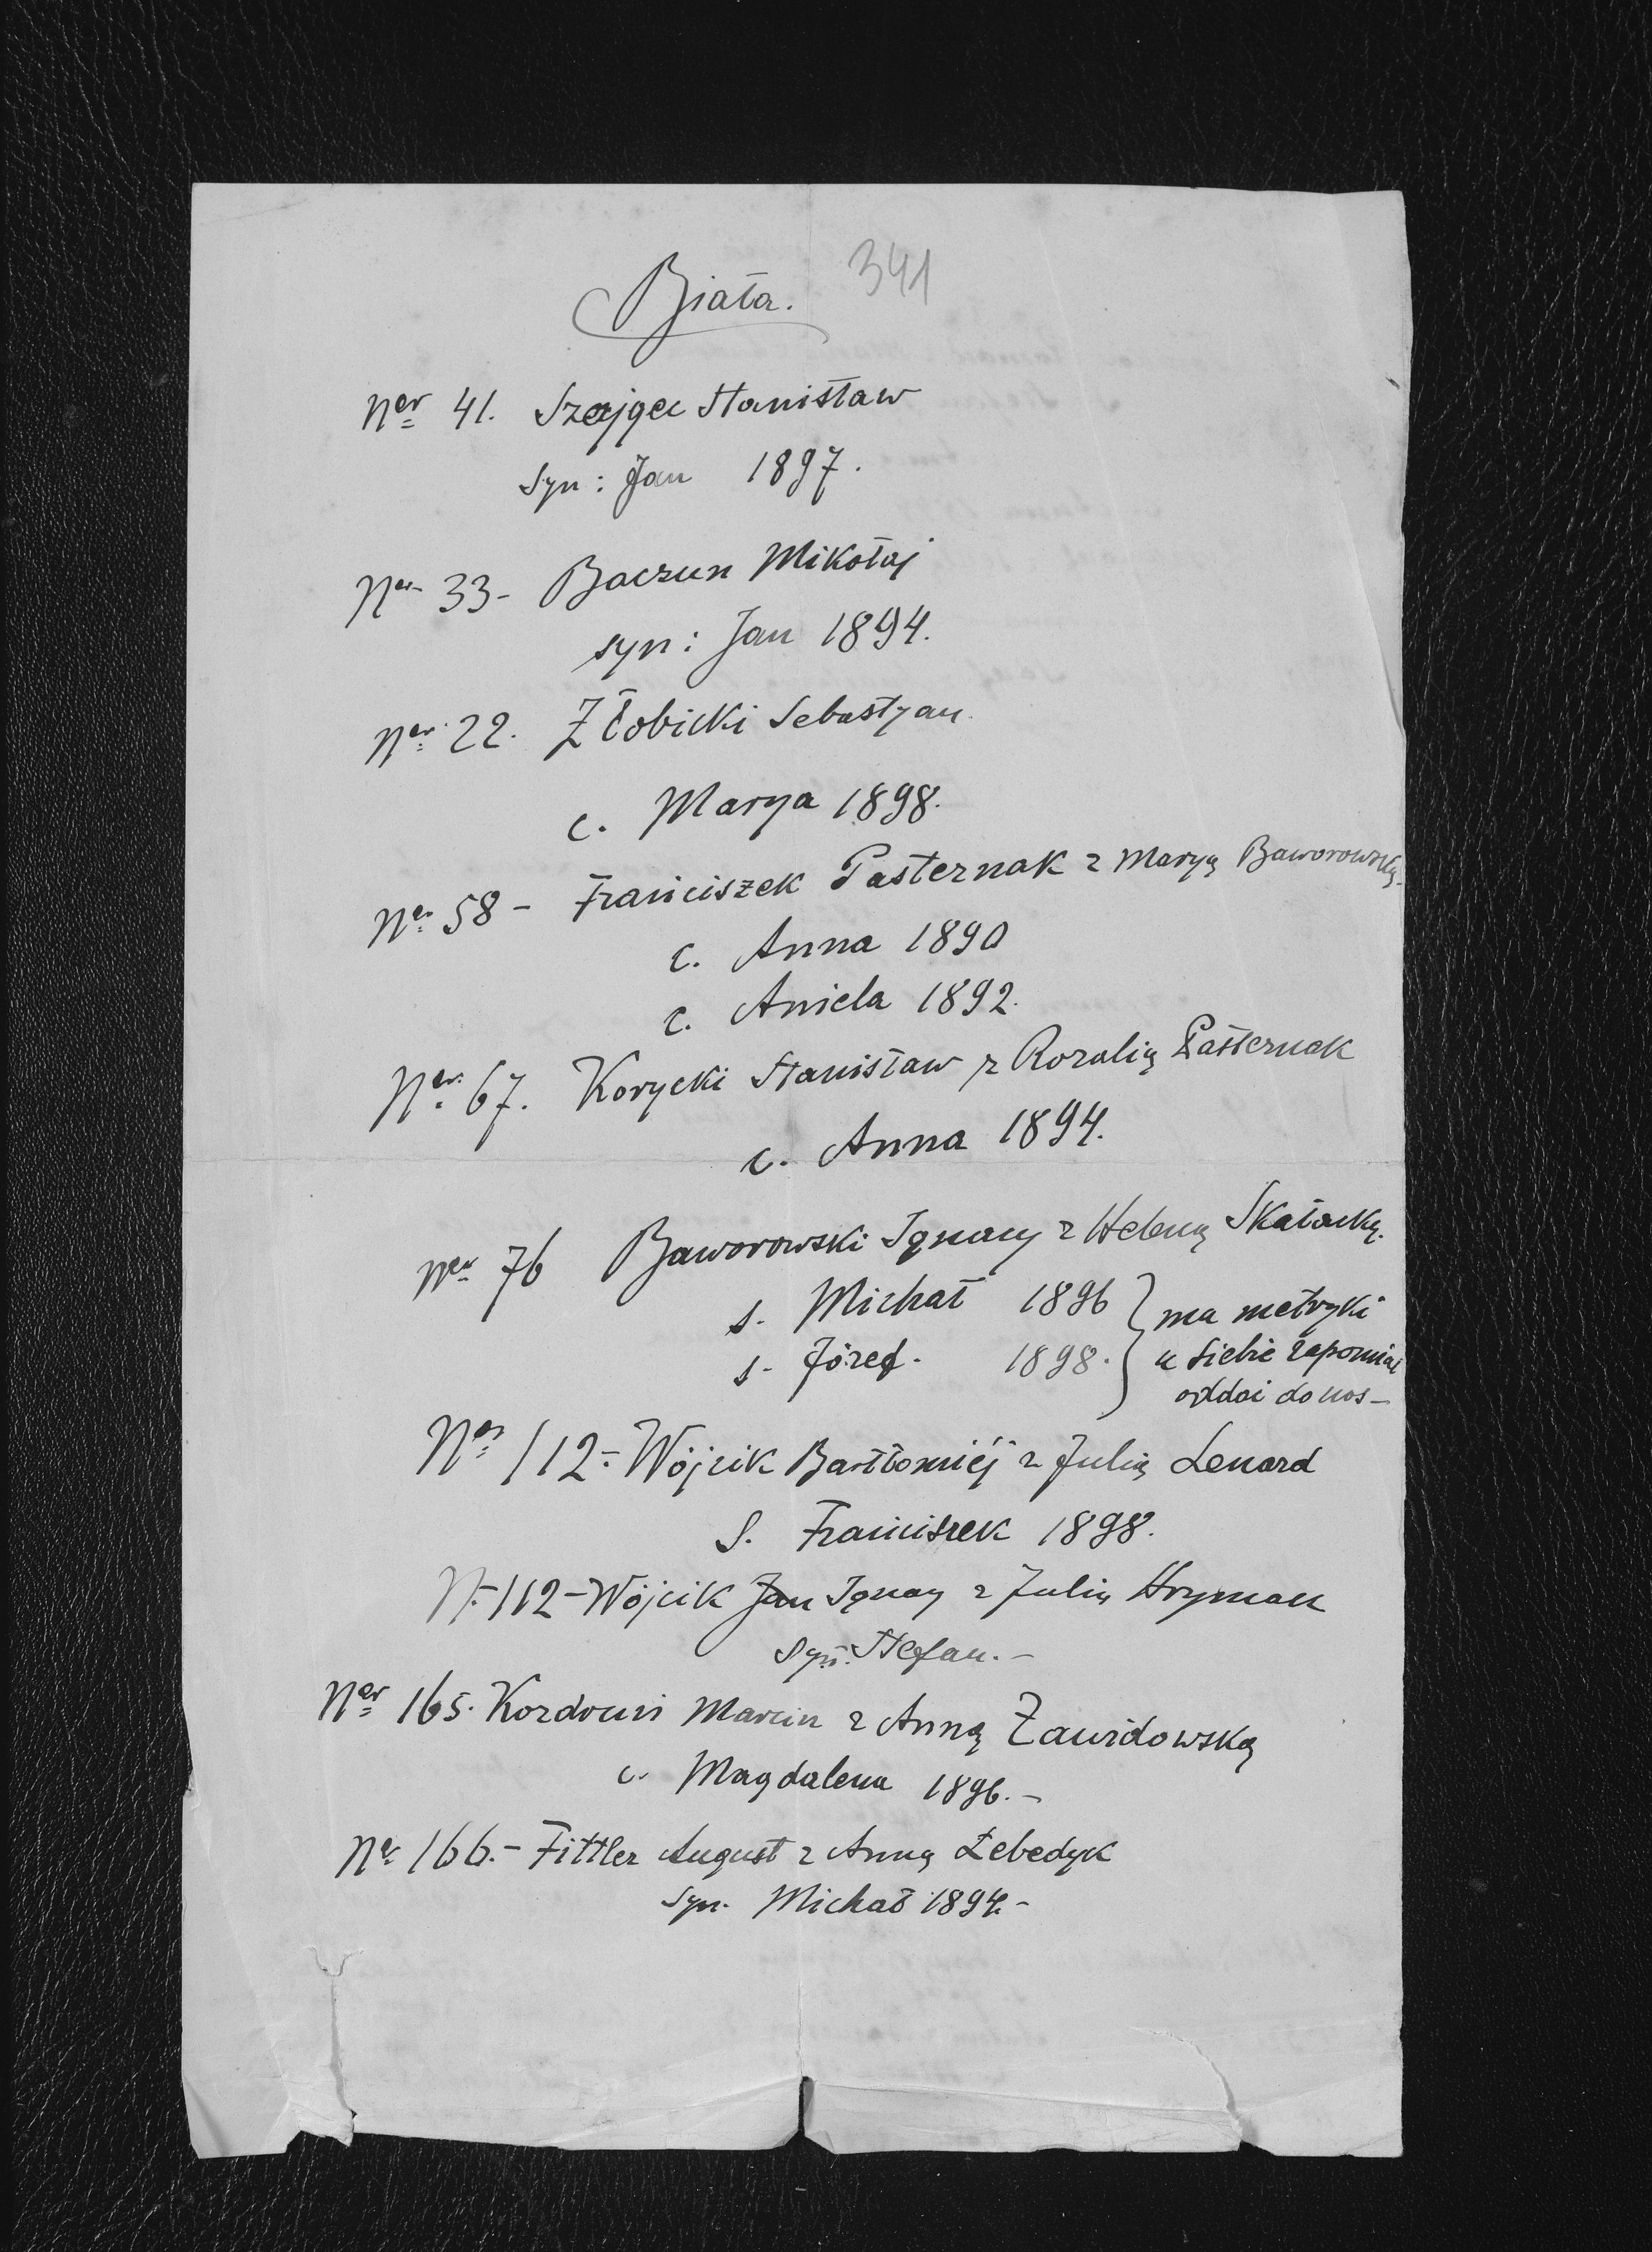 Biała. 341
Ner 41. Szajgec Stanisław
syn: Jan 1897.
Ner 33- Baczun Mikołaj
syn: Jan 1894.
Ner 22. Złobicki Sebastyan.
c. Marya 1898.
Ner 58- Franciszek Pasternak z Maryą Baworowską
c. Anna 1890
c. Aniela 1892.
Ner 67. Korycki Stanisław z Rozalią Pasternak
c. Anna 1894.
Ner 76 Baworowski Ignacy z Heleną Skałacką.
s. Michał 1896
s. Józef. 1898.
ma metryki
u siebie zapomniał
oddać do nas-
Ner 112- Wójcik Bartłomiéj z Julią Lenard
S. Franciszek 1898.
N- 112- Wójcik Jan Ignacy z Julią Hryman
Syn. Stefan.-
Ner 165. Kozdruń Marcin z Anną Zawidowską
c. Magdalena 1896.-
Ner 166.- Fittler August z Anną Łebedyk
syn. Michał 1894.-